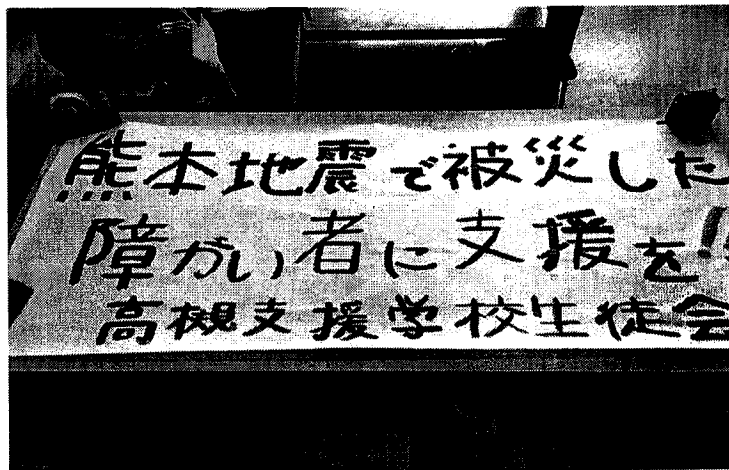 熊本地震で被災した
障がい者に支援を!!
高槻支援学校生徒会